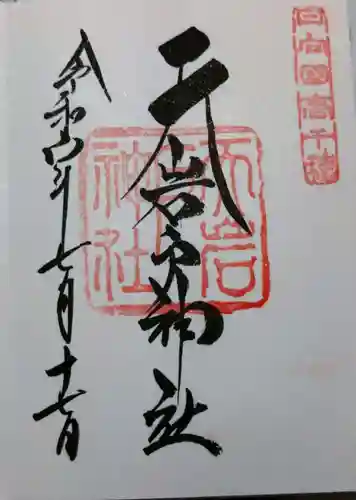 日向国高千穂
天岩戸神社
天岩戸神社
令和六年七月十七日